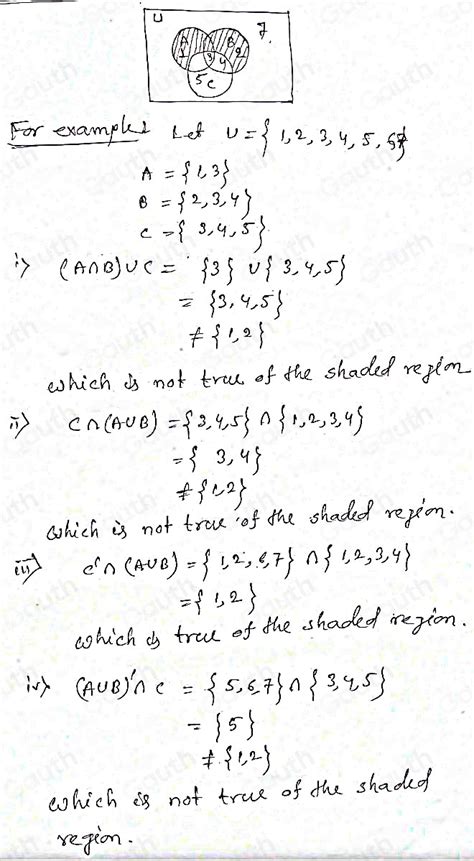 U
7.
A
B
1
2
3
4
5
C
For example:
Let U = { 1, 2, 3, 4, 5, 6, 7}
A = {1, 3}
B = {2, 3, 4}
C = { 3, 4, 5}
i> (A∩B)∪C = {3} ∪ { 3, 4, 5}
= {3, 4, 5}
≠ {1, 2}
which is not true of the shaded region
ii> C∩(A∪B) = {3, 4, 5} ∩ {1, 2, 3, 4}
= { 3, 4}
≠ {1, 2}
which is not true of the shaded region.
iii> C'∩(A∪B) = { 1, 2, 6, 7} ∩ { 1, 2, 3, 4}
= { 1, 2}
which is true of the shaded region.
iv> (A∪B)'∩ C = {5, 6, 7} ∩ {3, 4, 5}
= {5}
≠ {1, 2}
which is not true of the shaded
region.